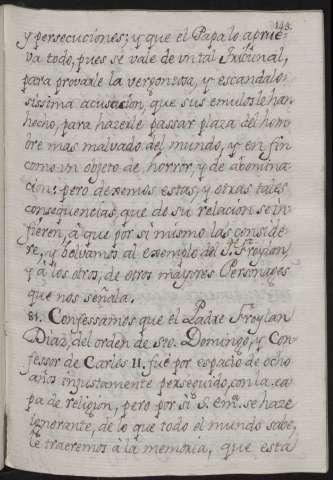 148.
y persecuciones; y que el Papa lo aprue-
va todo, pues se vale de un tal Tribunal,
para provarle la vergonzosa, y escandalo-
sissima acusacion, que sus emulos le han
hecho, para hazerle passar plaza del hom-
bre mas malvado del mundo, y en fin
como un objeto de horror, y de abomina-
cion: pero dexemos estas, y otras tales
consequencias, que de su relacion se in-
fieren, à que por si mismo las conside-
re, y bolvamos al exemplo del P. Froylan,
y à los otros, de otros mayores Personages
que nos señala.
81. Confessamos que el Padre Froylan
Diaz, del orden de Sto. Domingo, y Con-
fessor de Carlos II. fué por espacio de ocho
años injustamente perseguido, con la ca-
pa de religion, pero por si S. Emª. se haze
ignorante, de lo que todo el mundo sabe,
le traeremos à la memoria, que esta